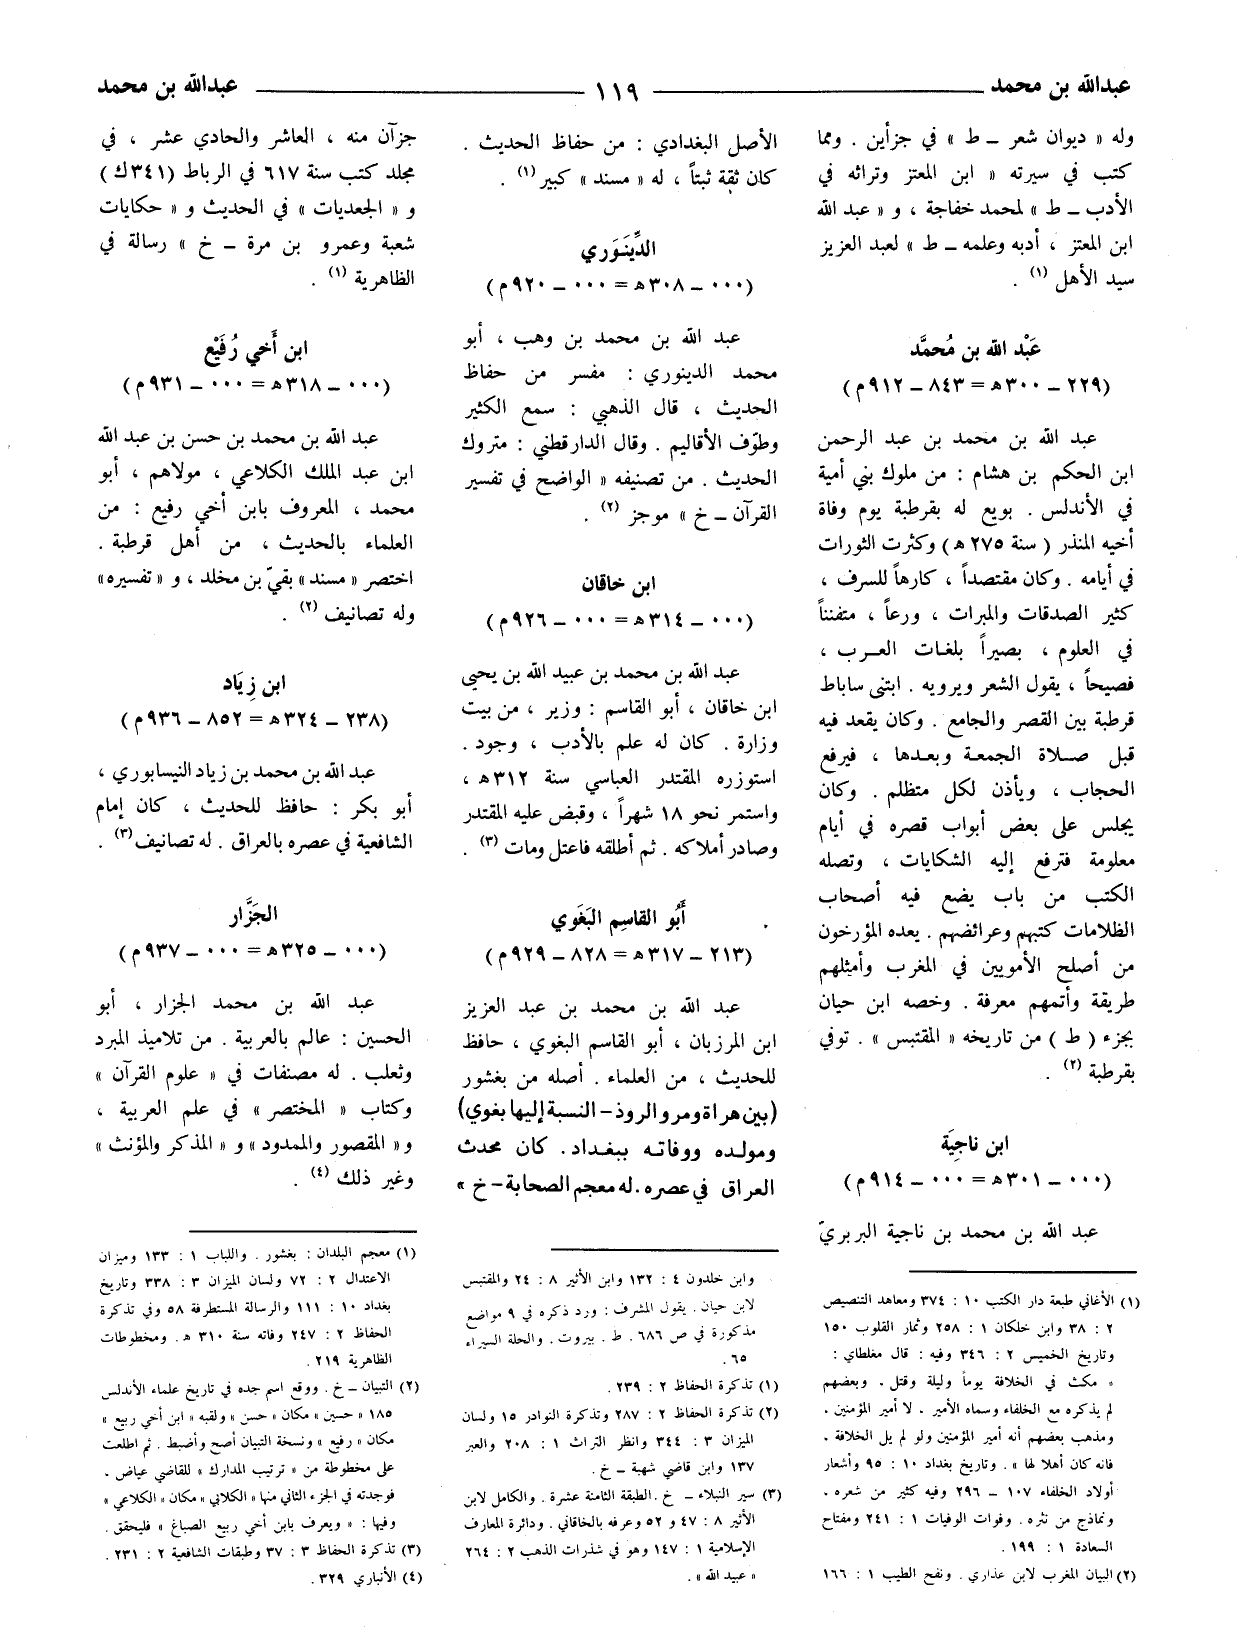 عبدالله بن محمد ١١٩ عبدالله بن محمد
وله « ديوان شعر ــ ط » في جزأين . ومما
كتب في سيرته « ابن المعتز وتراثه في
الأدب ــ ط » لمحمد خفاجة ، و « عبد الله
ابن المعتز ، أدبه وعلمه ــ ط » لعبد العزيز
سيد الأهل (١) .
عَبْد الله بن مُحمَّد
(٢٢٩ ــ ٣٠٠ ه = ٨٤٣ ــ ٩١٢ م)
عبد الله بن محمد بن عبد الرحمن
ابن الحكم بن هشام : من ملوك بني أمية
في الأندلس . بويع له بقرطبة يوم وفاة
أخيه المنذر ( سنة ٢٧٥ ه ) وكثرت الثورات
في أيامه . وكان مقتصداً ، كارهاً للسرف ،
كثير الصدقات والمبرات ، ورعاً ، متفنناً
في العلوم ، بصيراً بلغات العرب ،
فصيحاً ، يقول الشعر ويرويه . ابتنى ساباط
قرطبة بين القصر والجامع . وكان يقعد فيه
قبل صلاة الجمعة وبعدها ، فيرفع
الحجاب ، ويأذن لكل متظلم . وكان
يجلس على بعض أبواب قصره في أيام
معلومة فترفع إليه الشكايات ، وتصله
الكتب من باب يضع فيه أصحاب
الظلامات كتبهم وعرائضهم . يعده المؤرخون
من أصلح الأمويين في المغرب وأمثلهم
طريقة وأتمهم معرفة . وخصه ابن حيان
بجزء ( ط ) من تاريخه « المقتبس » . توفي
بقرطبة (٢) .
ابن ناجِيَة
(٠٠٠ ــ ٣٠١ ه = ٠٠٠ ــ ٩١٤ م)
عبد الله بن محمد بن ناجية البربريّ
(١) الأغاني طبعة دار الكتب ١٠ : ٣٧٤ ومعاهد التنصيص
٢ : ٣٨ وابن خلكان ١ : ٢٥٨ وثمار القلوب ١٥٠
وتاريخ الخميس ٢ : ٣٤٦ وفيه : قال مغلطاي :
« مكث في الخلافة يوماً وليلة وقتل . وبعضهم
لم يذكره مع الخلفاء وسماه الأمير . لا أمير المؤمنين .
ومذهب بعضهم أنه أمير المؤمنين ولو لم يل الخلافة .
فانه كان أهلا لها » . وتاريخ بغداد ١٠ : ٩٥ وأشعار
أولاد الخلفاء ١٠٧ ــ ٢٩٦ وفيه كثير من شعره .
ونماذج من نثره . وفوات الوفيات ١ : ٢٤١ ومفتاح
السعادة ١ : ١٩٩ .
(٢) البيان المغرب لابن عذاري . ونفح الطيب ١ : ١٦٦
الأصل البغدادي : من حفاظ الحديث .
كان ثقة ثبتاً ، له « مسند » كبير (١) .
الدِّينَوَري
(٠٠٠ ــ ٣٠٨ ه = ٠٠٠ ــ ٩٢٠ م)
عبد الله بن محمد بن وهب ، أبو
محمد الدينوري : مفسر من حفاظ
الحديث ، قال الذهبي : سمع الكثير
وطوّف الأقاليم . وقال الدارقطني : متروك
الحديث . من تصنيفه « الواضح في تفسير
القرآن ــ خ » موجز (٢) .
ابن خاقان
(٠٠٠ ــ ٣١٤ ه = ٠٠٠ ــ ٩٢٦ م)
عبد الله بن محمد بن عبيد الله بن يحيى
ابن خاقان ، أبو القاسم : وزير ، من بيت
وزارة . كان له علم بالأدب ، وجود .
استوزره المقتدر العباسي سنة ٣١٢ ه ،
واستمر نحو ١٨ شهراً ، وقبض عليه المقتدر
وصادر أملاكه . ثم أطلقه فاعتل ومات (٣) .
أَبُو القاسِم البَغَوي
(٢١٣ ــ ٣١٧ ه = ٨٢٨ ــ ٩٢٩ م)
عبد الله بن محمد بن عبد العزيز
ابن المرزبان ، أبو القاسم البغوي ، حافظ
للحديث ، من العلماء . أصله من بغشور
(بين هراة ومرو الروذ – النسبة إليها بغوي)
ومولده ووفاته ببغداد . كان محدث
العراق في عصره . له معجم الصحابة – خ »
وابن خلدون ٤ : ١٣٢ وابن الأثير ٨ : ٢٤ والمقتبس
لابن حيان . يقول المشرف : ورد ذكره في ٩ مواضع
مذكورة في ص ٦٨٦ . ط . بيروت . والحلة السيراء
٦٥ .
(١) تذكرة الحفاظ ٢ : ٢٣٩ .
(٢) تذكرة الحفاظ ٢ : ٢٨٧ وتذكرة النوادر ١٥ ولسان
الميزان ٣ : ٣٤٤ وانظر التراث ١ : ٢٠٨ والعبر
١٣٧ وابن قاضي شهبة ــ خ .
(٣) سير النبلاء ــ خ . الطبقة الثامنة عشرة . والكامل لابن
الأثير ٨ : ٤٧ و ٥٢ وعرفه بالخاقاني . ودائرة المعارف
الإسلامية ١ : ١٤٧ وهو في شذرات الذهب ٢ : ٢٦٤
« عبيد الله » .
جزآن منه ، العاشر والحادي عشر ، في
مجلد كتب سنة ٦١٧ في الرباط (٣٤١ك )
و « الجعديات » في الحديث و « حكايات
شعبة وعمرو بن مرة ــ خ » رسالة في
الظاهرية (١) .
ابن أَخي رُفَيْع
(٠٠٠ ــ ٣١٨ ه = ٠٠٠ ــ ٩٣١ م)
عبد الله بن محمد بن حسن بن عبد الله
ابن عبد الملك الكلاعي ، مولاهم ، أبو
محمد ، المعروف بابن أخي رفيع : من
العلماء بالحديث ، من أهل قرطبة .
اختصر « مسند » بقيّ بن مخلد ، و « تفسيره »
وله تصانيف (٢) .
ابن زِيَاد
(٢٣٨ ــ ٣٢٤ ه = ٨٥٢ ــ ٩٣٦ م)
عبد الله بن محمد بن زياد النيسابوري ،
أبو بكر : حافظ للحديث ، كان إمام
الشافعية في عصره بالعراق . له تصانيف (٣) .
الجَزَّار
(٠٠٠ ــ ٣٢٥ ه = ٠٠٠ ــ ٩٣٧ م)
عبد الله بن محمد الجزار ، أبو
الحسين : عالم بالعربية . من تلاميذ المبرد
وثعلب . له مصنفات في « علوم القرآن »
وكتاب « المختصر » في علم العربية ،
و « المقصور والممدود » و « المذكر والمؤنث »
وغير ذلك (٤) .
(١) معجم البلدان : بغشور . واللباب ١ : ١٣٣ وميزان
الاعتدال ٢ : ٧٢ ولسان الميزان ٣ : ٣٣٨ وتاريخ
بغداد ١٠ : ١١١ والرسالة المستطرفة ٥٨ وفي تذكرة
الحفاظ ٢ : ٢٤٧ وفاته سنة ٣١٠ ه . ومخطوطات
الظاهرية ٢١٩ .
(٢) التبيان ــ خ . ووقع اسم جده في تاريخ علماء الأندلس
١٨٥ « حسين » مكان « حسن » ولقبه « ابن أخي ربيع »
مكان « رفيع » ونسخة التبيان أصح وأضبط . ثم اطلعت
على مخطوطة من « ترتيب المدارك » للقاضي عياض .
فوجدته في الجزء الثاني منها « الكلابي » مكان « الكلاعي »
وفيها : « ويعرف بابن أخي ربيع الصباغ » فليحقق .
(٣) تذكرة الحفاظ ٣ : ٣٧ وطبقات الشافعية ٢ : ٢٣١ .
(٤) الأنباري ٣٢٩ .